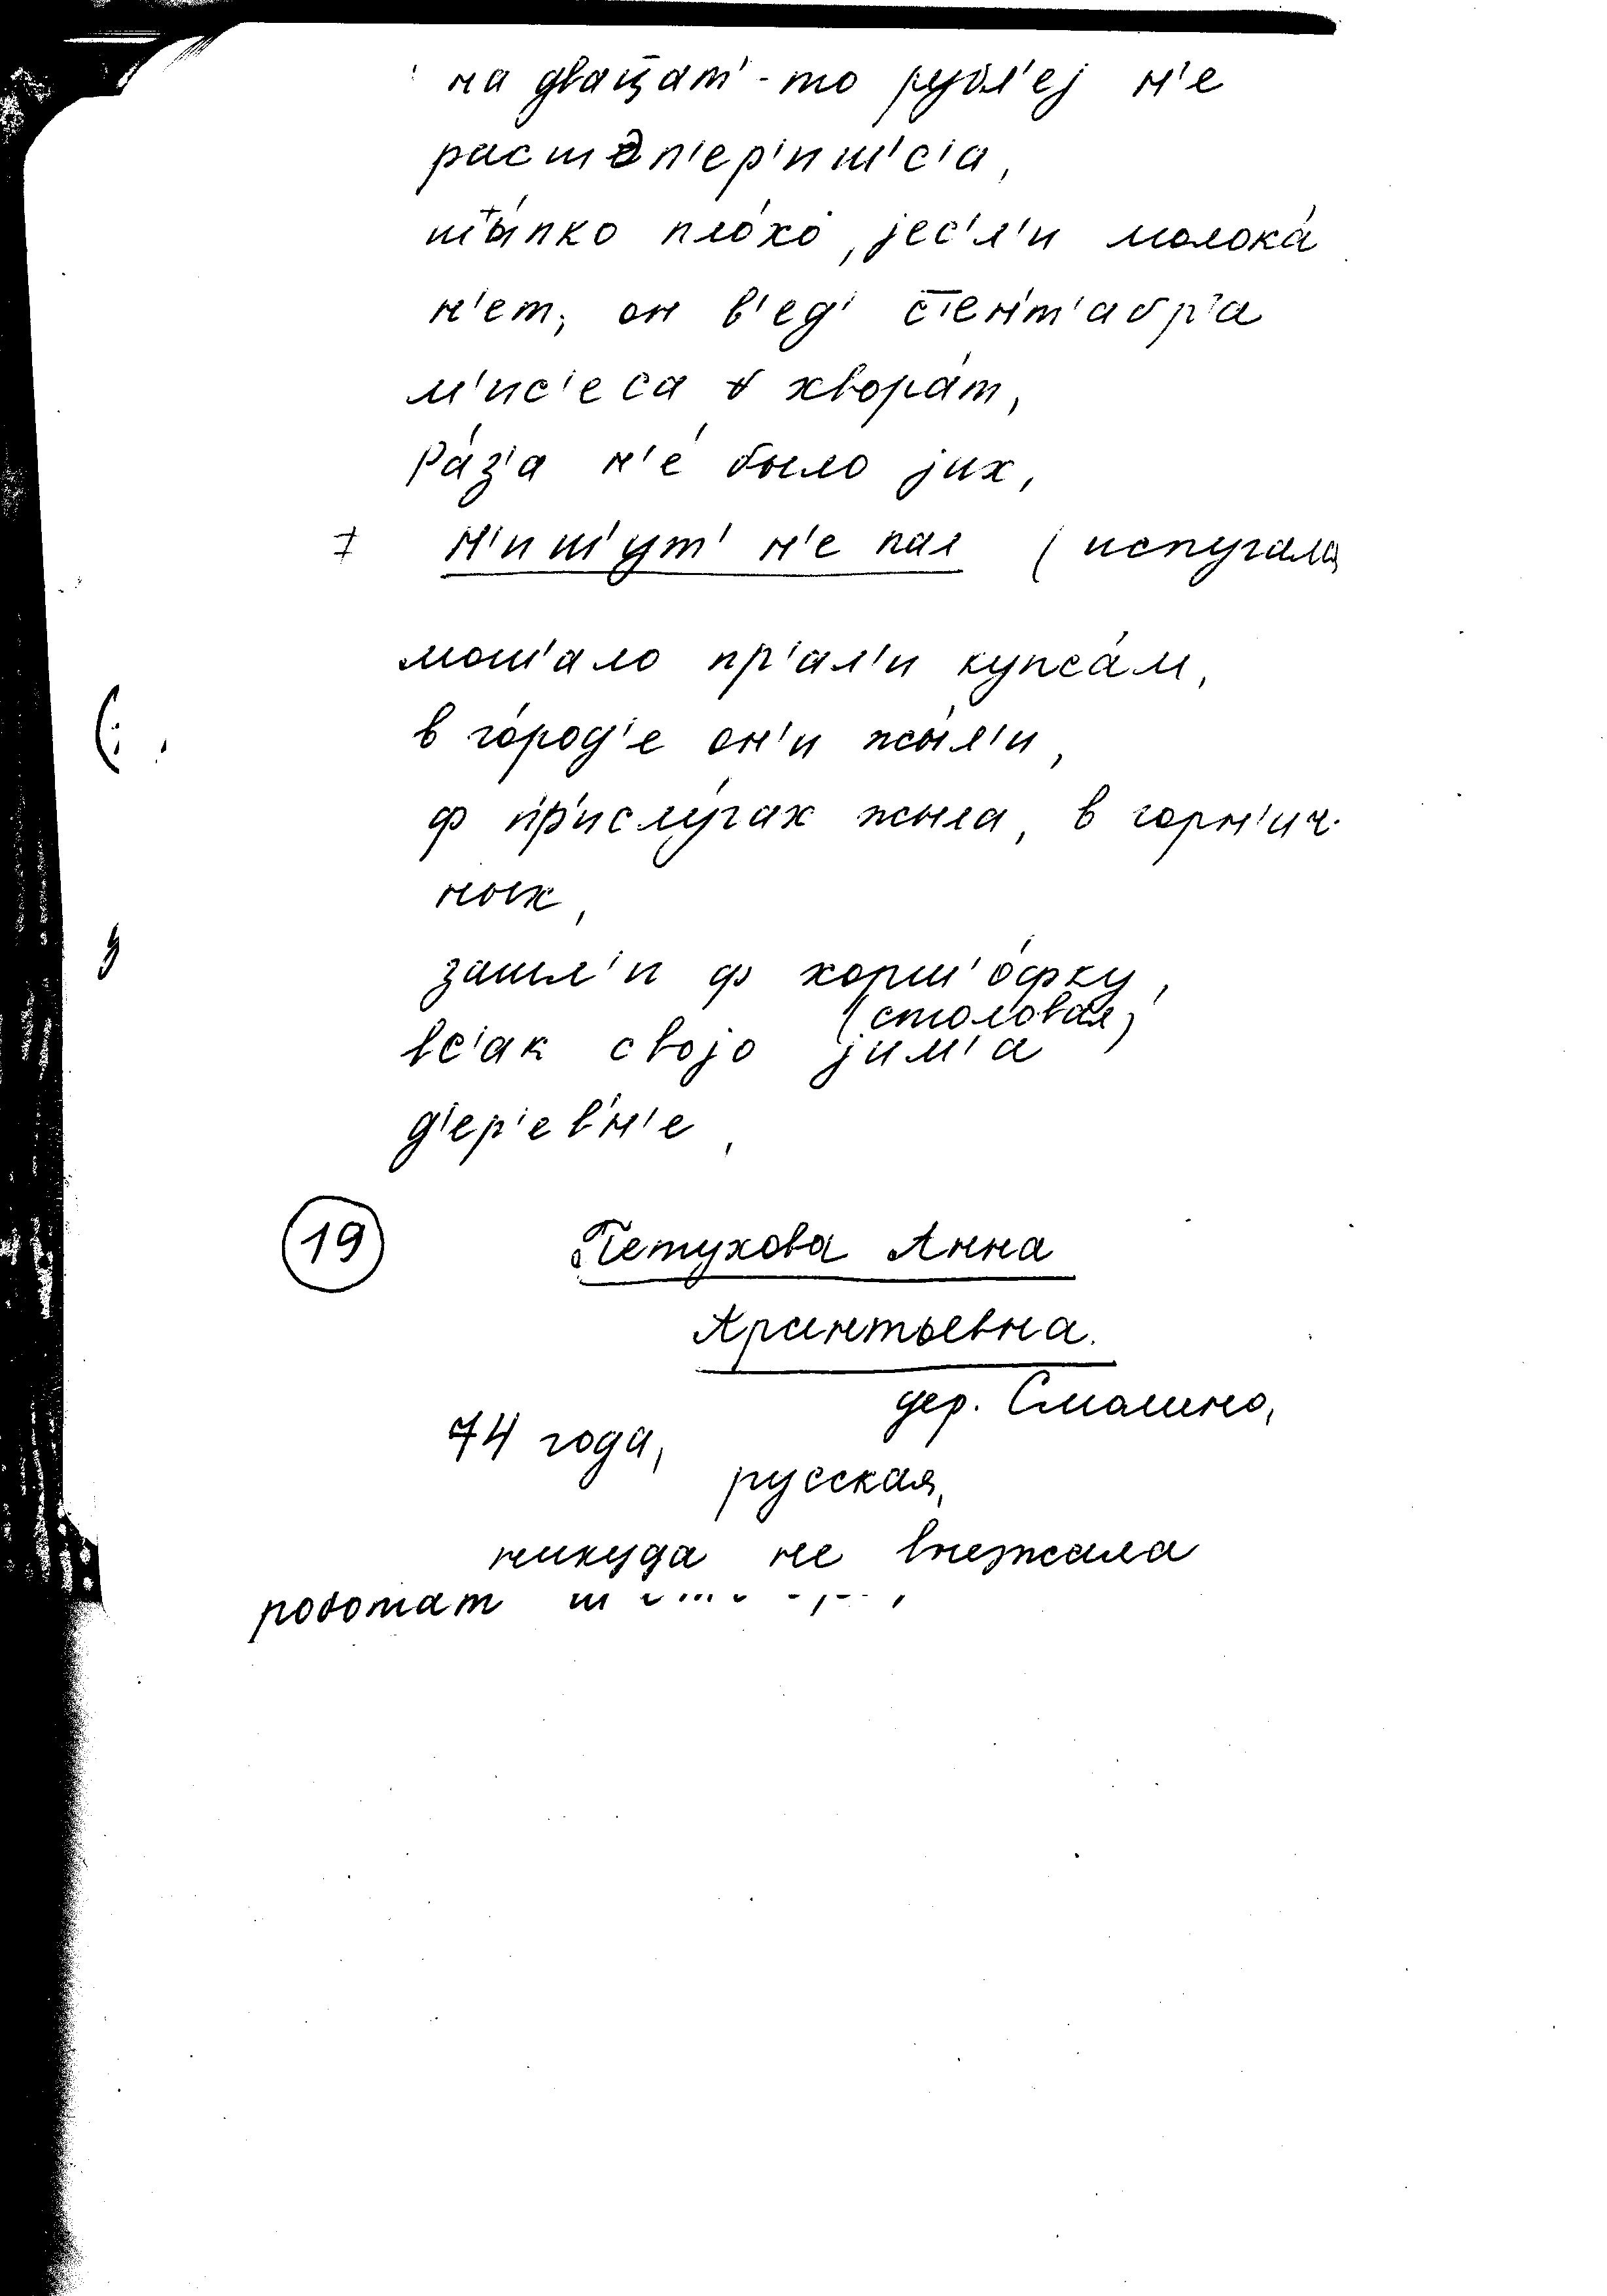 на двац̄ат'-то рубл'еј н'е
растоп'ер'иш'с'а,
шы́пко пло́хо, јес'л'и молока́
н'ет, он в'ед' с'ен'т'абр'а
м'ис'еса хвора́т,
Ра́з'а н'е́ было јих,
≠ н'иш'ут' н'е пал (испугала
моч'ало пр'ал'и купса́м,
в го́род'е он'и жы́л'и,
ф п'р'ислу́гах жыла, в горн'ич-
ных,
зашл'и ф хорш'о́фку,
(столовая)
вс'ак својо јим'а
д'ер'евн'е,
19 Петухова Анна
дер. Смолино,
74 года,
русская,
никуда не выезжала
роботат